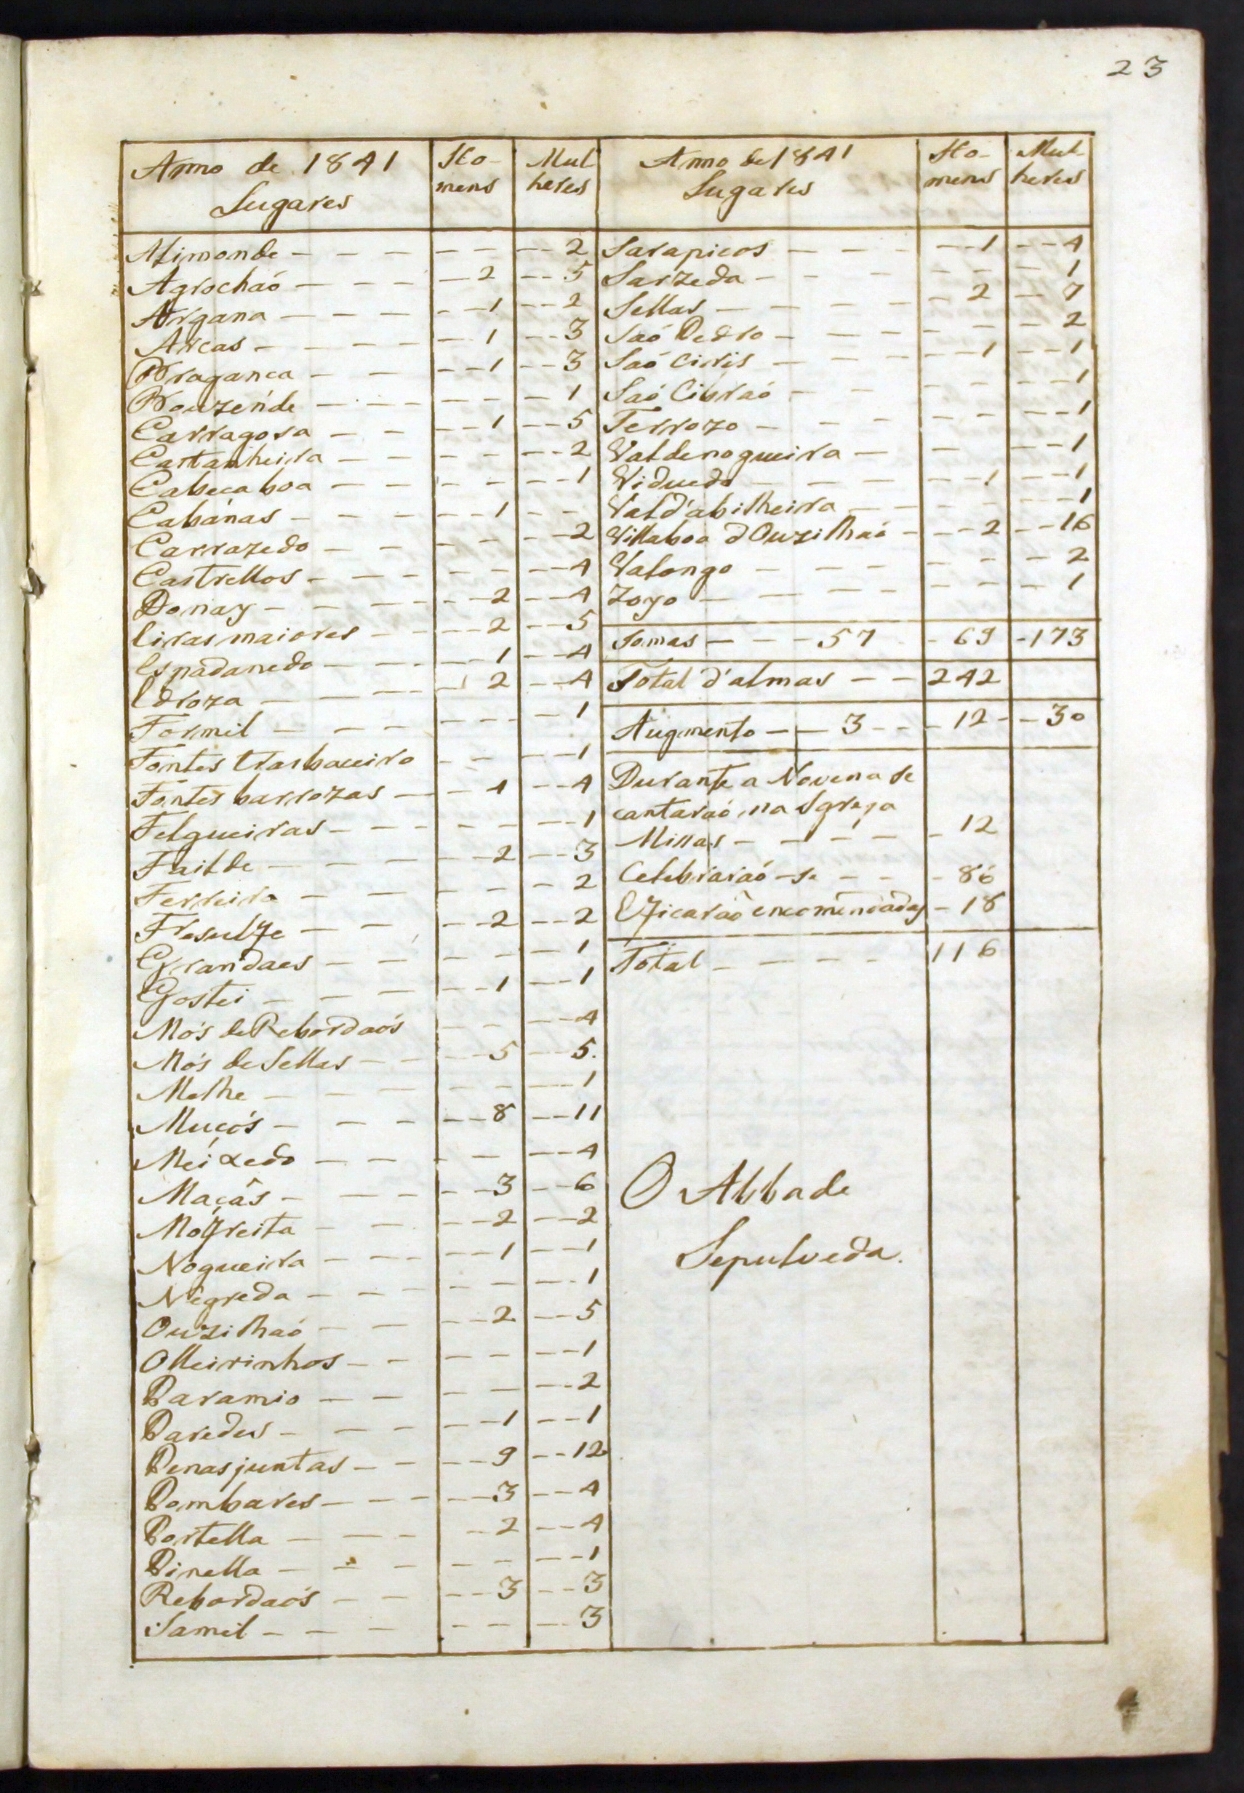 23
Anno de 1841 Lugares | Ho-mens | Mulheres
Alimonde - - - - - - - - 2
Agrochaó - - - - 2 - - 5
Argana - - - - 1 - - 2
Arcas - - - - 1 - - 3
Braganca - - - - 1 - - 3
Bouzende - - - - - - - 1
Carragosa - - - - 1 - - 5
Castanheira - - - - - - - 2
Cabecaboa - - - - - - - 1
Cabánas - - - - 1 - -
Carrazedo - - - - - - - 2
Castrellos - - - - - - - 4
Donay - - - - 2 - - 4
Eiras maiores - - - 2 - - 5
Espadanedo - - - - 1 - - 4
Edroza - - - - 2 - - 4
Formil - - - - - - - 1
Fontes trasbaceiro - - - - 1
Fontes barrozas - - - 1 - - 4
Felgueiras - - - - - - - 1
Failde - - - - 2 - - 3
Ferreira - - - - - - - 2
Fresulfe - - - - 2 - - 2
Grandaes - - - - - - - 1
Gostei - - - - 1 - - 1
Mós de Rebordaós - - - - 4
Mós de Sellas - - - 5 - - 5.
Melhe - - - - - - - 1
Mucós - - - - 8 - - 11
Meixedo - - - - - - - 4
Maçâs - - - - 3 - - 6
Mófreita - - - - 2 - - 2
Nogueira - - - - 1 - - 1
Negreda - - - - - - - 1
Ouzilhaó - - - - 2 - - 5
Olleirinhos - - - - - - 1
Paramio - - - - - - 2
Paredes - - - - 1 - - 1
Penasjuntas - - - 9 - - 12
Pombares - - - - 3 - - 4
Portella - - - - 2 - - 4
Pinella - - - - - - - 1
Rebordaós - - - - 3 - - 3
Samil - - - - - - - 3
Anno de 1841 Lugares | Ho-mens | Mul-heres
Sarapicos - - - - 1 - - 4
Sarzeda - - - - - - - 1
Sellas - - - - 2 - - 7
Saó Pedro - - - - - - - 2
Saó Ciris - - - - 1 - - 1
Saó Cibraó - - - - - - - 1
Terrozo - - - - - - - 1
Valdenogueira - - - - - 1
Viduedo - - - - 1 - - 1
Vald'abilheira - - - - - - 1
Villaboa d Ouzilhaó - - - 2 - - 16
Valongo - - - - - - - 2
Zoyo - - - - - - - 1
Somas - - - 57 - 69 - 173
Total d'almas - - 242
Augmento - - 3 - - 12 - - 30
Durante a Novena se
cantaraó, na Igreja
Missas - - - - - 12
Celebraraó-se - - - 86
E ficarâó encomêndadas - 18
Total - - - - - 116
O Abbade
Sepulveda.